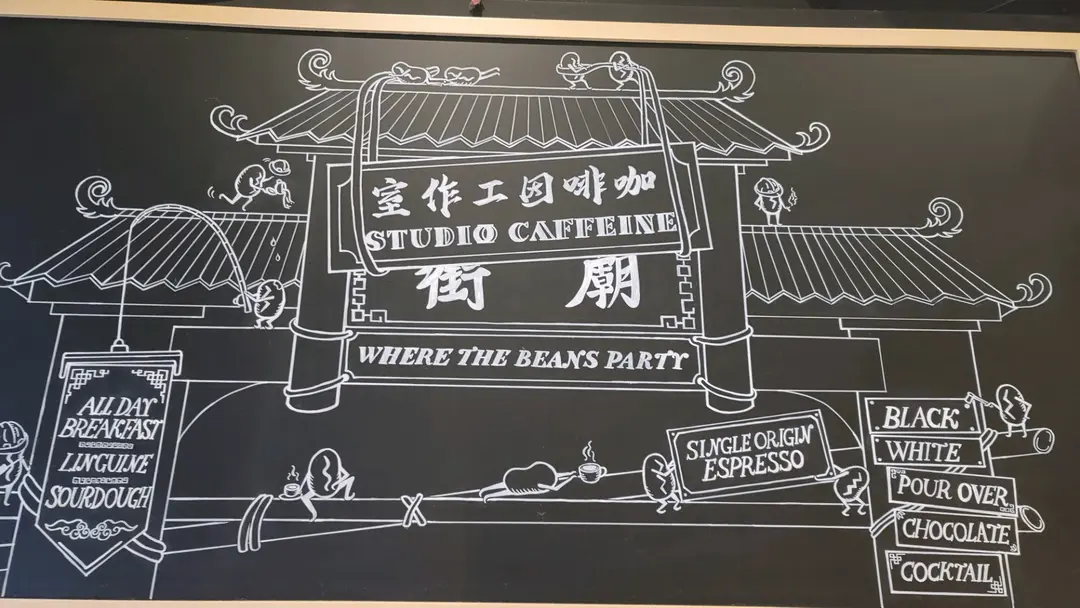 咖啡因工作室
STUDIO CAFFEINE
廟街
WHERE THE BEANS PARTY
ALL DAY
BREAKFAST
LINGUINE
SOURDOUGH
SINGLE ORIGIN
ESPRESSO
BLACK
WHITE
POUR OVER
CHOCOLATE
COCKTAIL